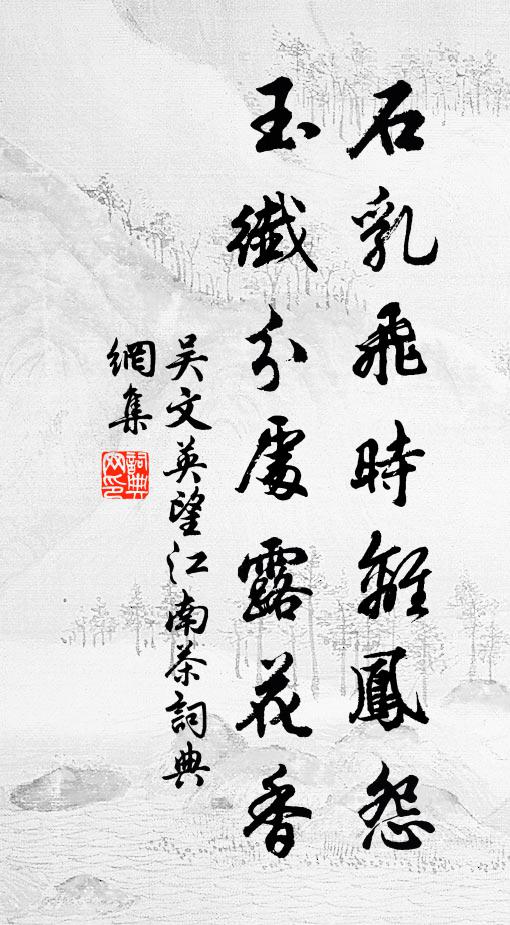 石乳飛時離鳳怨
玉纖分處露花香
吳文英望江南茶詞典
網集
詞典網印